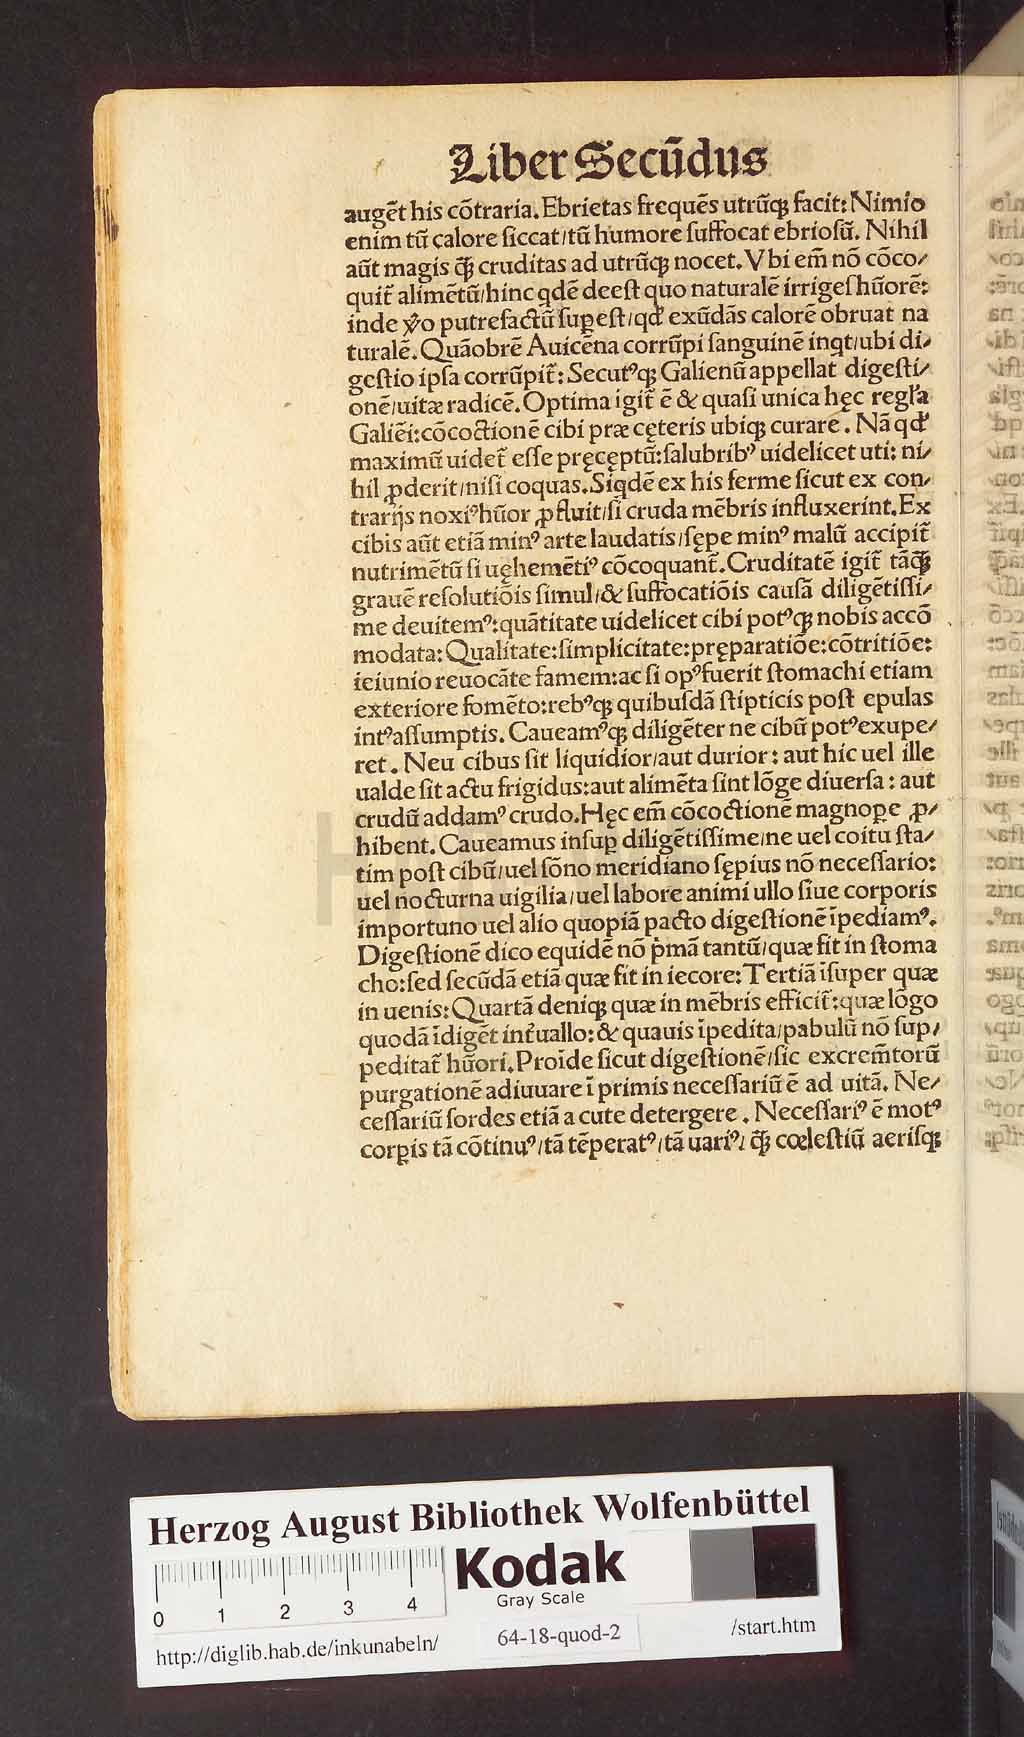 Liber Secūdus
augēt his cōtraria. Ebrietas frequēs utrūqꝫ facit: Nimio
enim tū calore siccat/tū humore suffocat ebriosū. Nihil
aūt magis q̄ꝫ cruditas ad utrūqꝫ nocet. Vbi em̄ nō cōco/
quit᷑ alimētū/hinc qdē deest quo naturalē irriges hūorē:
inde ꝟo putrefactū suꝑest/qđ exūdās calorē obruat na
turalē. Quāobrē Auicēna corrūpi sanguinē inqt/ubi di/
gestio ipsa corrūpit᷑: Secutꝰqꝫ Galienū appellat digesti/
onē/uitæ radicē. Optima igit᷑ ē & quasi unica hęc regl'a
Galiēi: cōcoctionē cibi præ cęteris ubiqꝫ curare. Nā qđ
maximū uidet᷑ esse pręcęptū: salubribꝰ uidelicet uti: ni/
hil ꝓderit/nisi coquas. Siqdē ex his ferme sicut ex con/
trarijs noxiꝰ hūor ꝓfluit/si cruda mēbris influxerint. Ex
cibis aūt etiā minꝰ arte laudatis/sępe minꝰ malū accipit᷑
nutrimētū si uęhemētiꝰ cōcoquant᷑. Cruditatē igit᷑ tāq̄ꝫ
grauē resolutiōis simul/& suffocatiōis causā diligētissi/
me deuitemꝰ: quātitate uidelicet cibi potꝰqꝫ nobis accō
modata: Qualitate: simplicitate: pręparatiōe: cōtritiōe:
ieiunio reuocāte famem: ac si opꝰ fuerit stomachi etiam
exteriore fomēto: rebꝰqꝫ quibusdā stipticis post epulas
intꝰ assumptis. Caueamꝰqꝫ diligēter ne cibū potꝰ exupe/
ret. Neu cibus sit liquidior/aut durior: aut hic uel ille
ualde sit actu frigidus: aut alimēta sint lōge diuersa: aut
crudū addamꝰ crudo. Hęc em̄ cōcoctionē magnoꝑe ꝓ/
hibent. Caueamus insuꝑ diligētissime/ne uel coitu sta/
tim post cibū/uel sōno meridiano sępius nō necessario:
uel nocturna uigilia/uel labore animi ullo siue corporis
importuno uel alio quopiā pacto digestionē īpediamꝰ.
Digestionē dico equidē nō p̍mā tantū/quæ fit in stoma
cho: sed secūdā etiā quæ fit in iecore: Tertiā īsuper quæ
in uenis: Quartā deniqꝫ quæ in mēbris efficit᷑: quæ lōgo
quodā īdiget int᷑uallo: & quauis īpedita/pabulū nō sup/
peditat᷑ hūori. Proīde sicut digestionē/sic excrem̄torū
purgationē adiuuare ī primis necessariū ē ad uitā. Ne/
cessariū sordes etiā a cute detergere. Necessariꝰ ē motꝰ
corꝑis tā cōtinuꝰ/tā tēperatꝰ/tā uariꝰ/ q̄ꝫ cœlestiū aerisqꝫ
Herzog August Bibliothek Wolfenbüttel
Kodak
Gray Scale
0 1 2 3 4
http://diglib.hab.de/inkunabeln/
64-18-quod-2
/start.htm